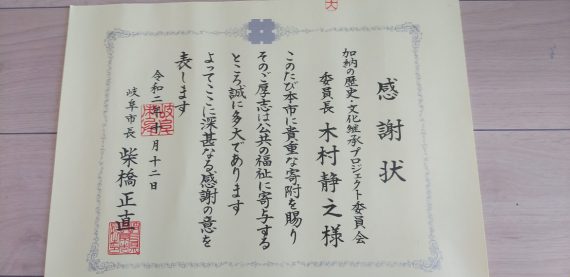 感謝状
加納の歴史・文化継承プロジェクト委員会
委員長 木村静之様
このたび本市に貴重な寄附を賜り
そのご厚志は公共の福祉に寄与する
ところ誠に多大であります
よってここに深甚なる感謝の意を
表します
令和二年十月十二日
岐阜市長 柴橋正直